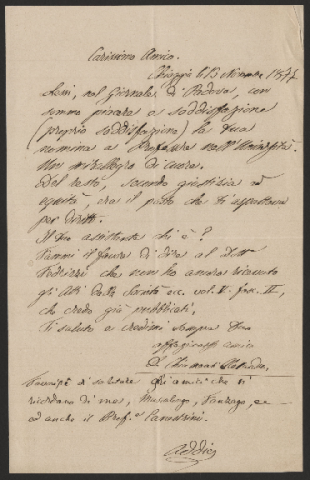 Carissimo Amico.
Chioggia li 15 Novembre 1877.
Lessi, nel Giornale di Padova, con
sommo piacere e soddisfazione
(proprio soddisfazione) la tua
nomina a Professore nell' Università.
Me ne rallegro di cuore.
Del resto, secondo giustizia ed
equità, era il posto che ti aspettava
per diritti.
Il tuo assistente chi è?
Fammi il favore di dire al Dott.
che non ho ancora ricevuto
gli Atti della Società ecc. vol. V. fasc. II,
che credo già pubblicati.
Ti saluto e credimi sempre Tuo
affezionatiss amico
di salutare gli amici che si
ricordano di me, ec
ed anche il Prof.e Canestrini.
Addio